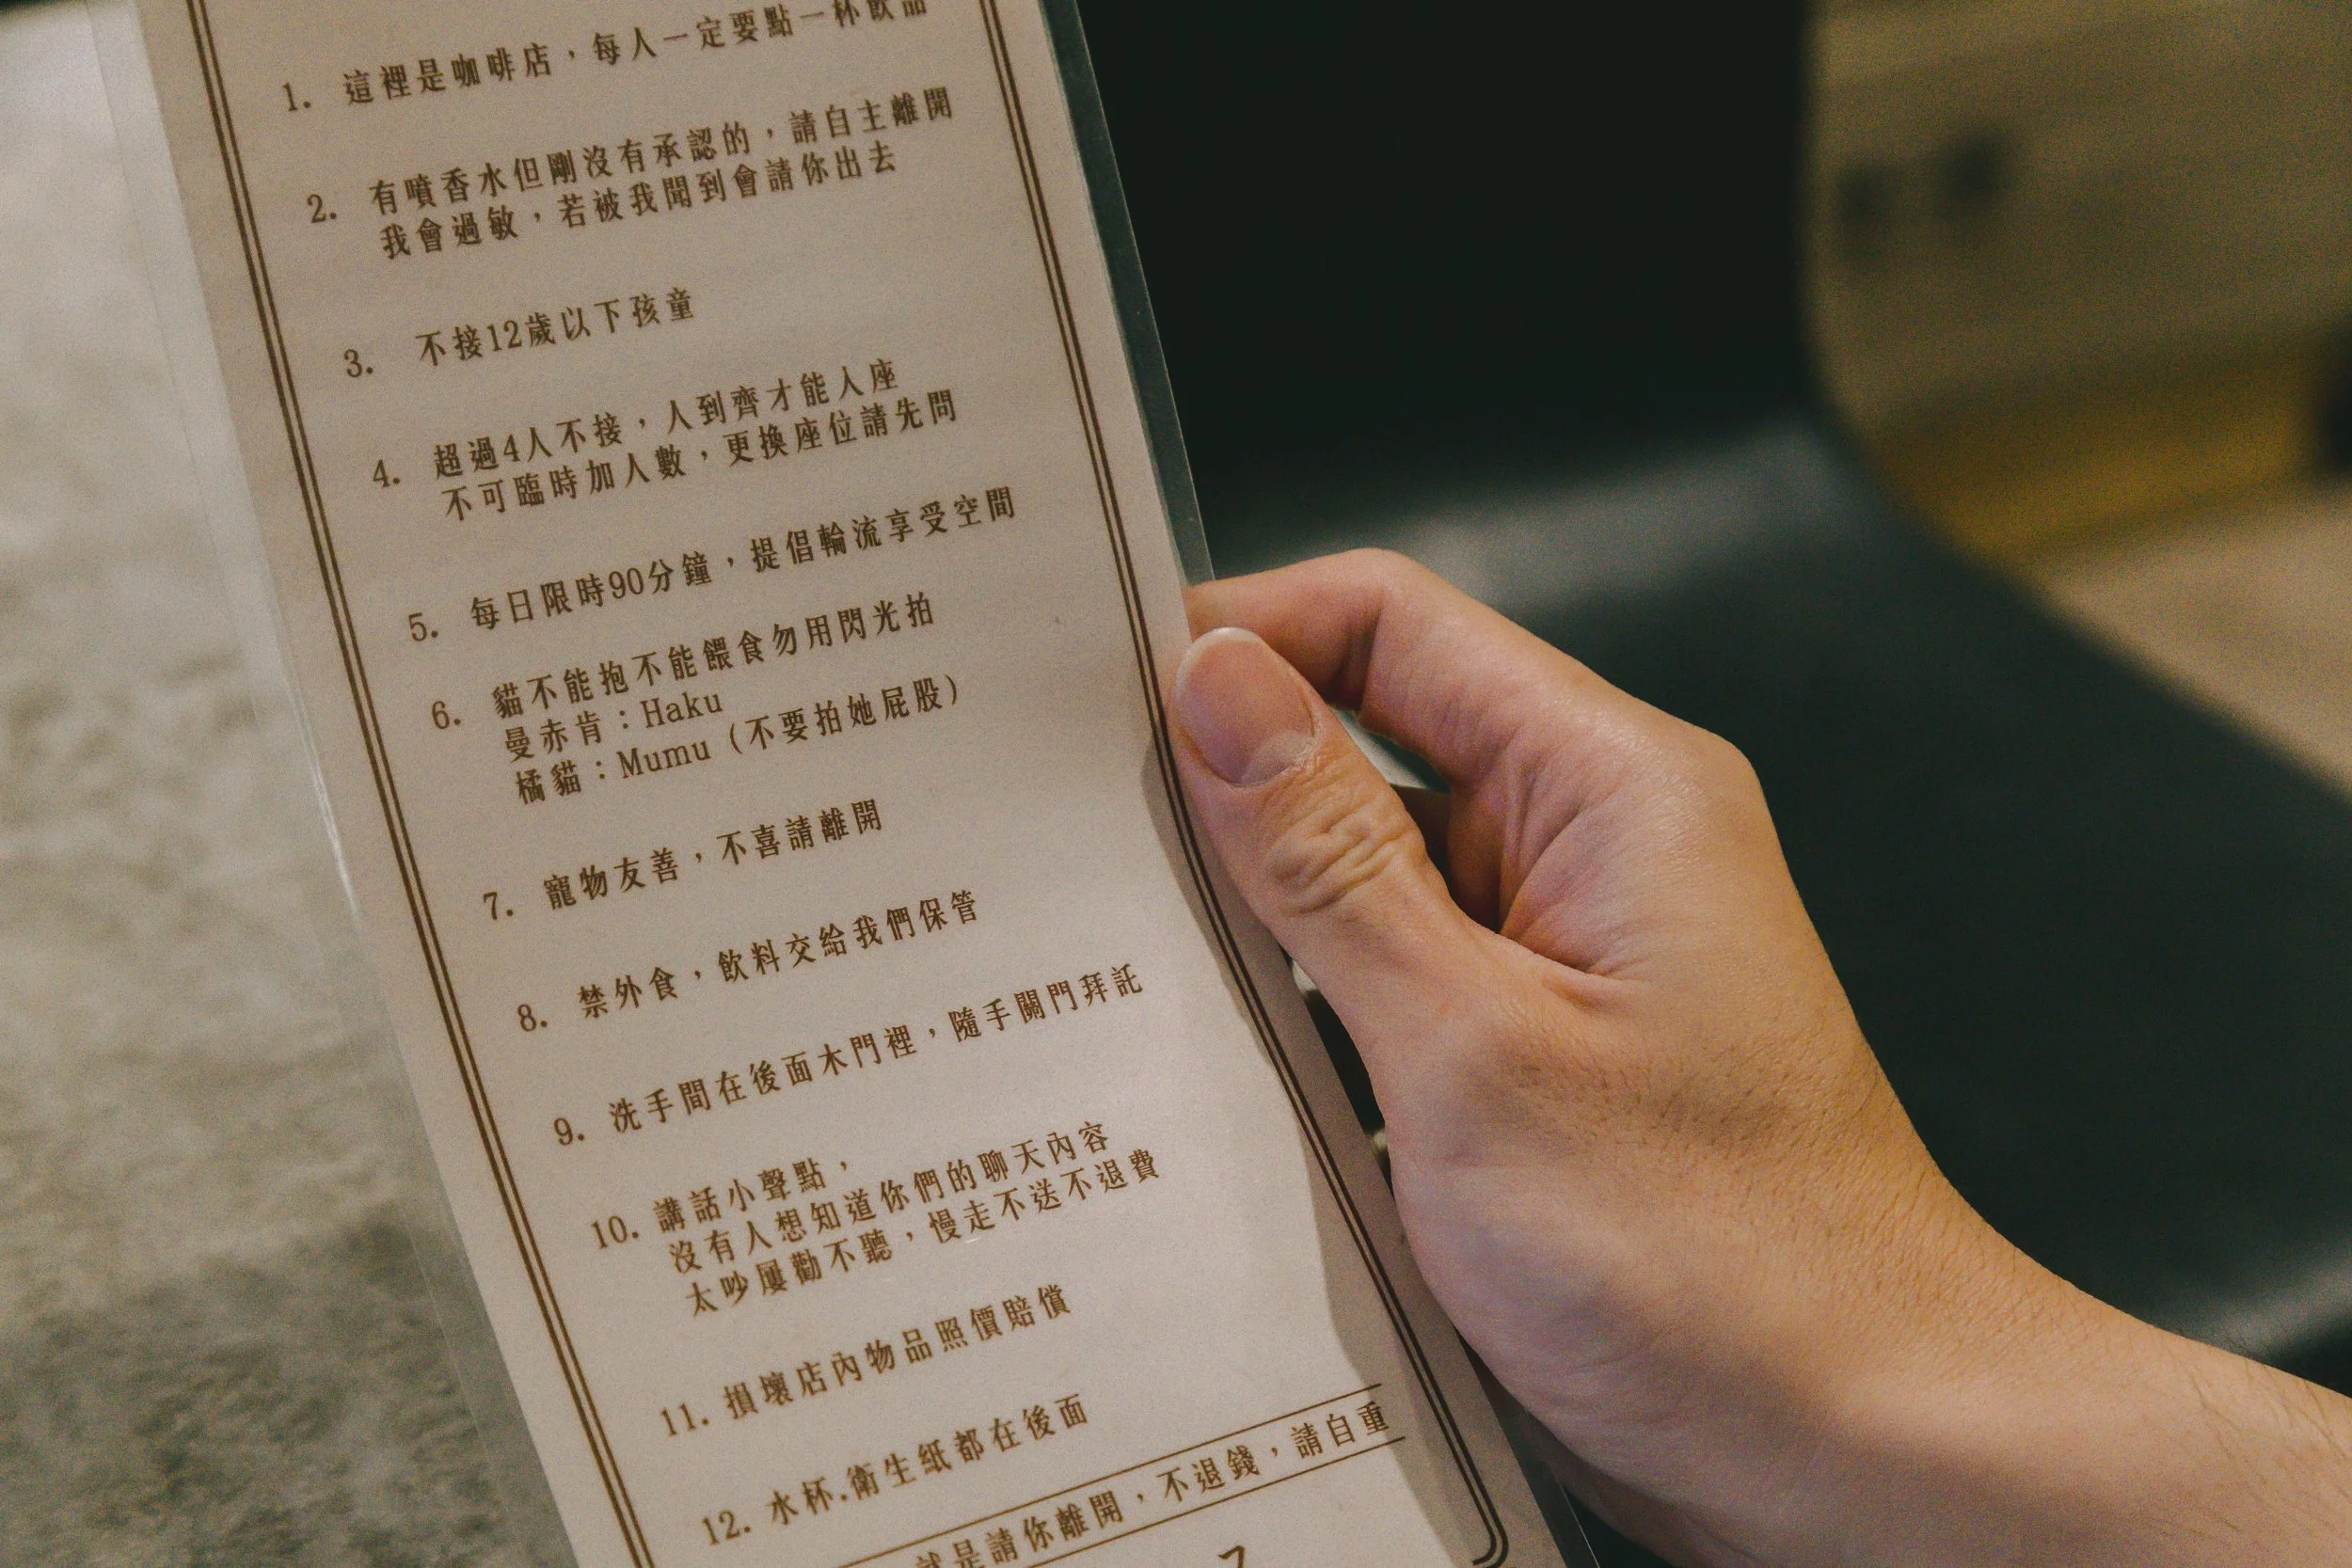 1. 這裡是咖啡店，每人一定要點一杯飲品
2. 有噴香水但剛沒有承認的，請自主離開
我會過敏，若被我聞到會請你出去
3. 不接12歲以下孩童
4. 超過4人不接，人到齊才能入座
不可臨時加人數，更換座位請先問
5. 每日限時90分鐘，提倡輪流享受空間
6. 貓不能抱不能餵食勿用閃光拍
曼赤肯：Haku
橘貓：Mumu（不要拍她屁股）
7. 寵物友善，不喜請離開
8. 禁外食，飲料交給我們保管
9. 洗手間在後面木門裡，隨手關門拜託
10. 講話小聲點，
沒有人想知道你們的聊天內容
太吵屢勸不聽，慢走不送不退費
11. 損壞店內物品照價賠償
12. 水杯.衛生紙都在後面
就是請你離開，不退錢，請自重